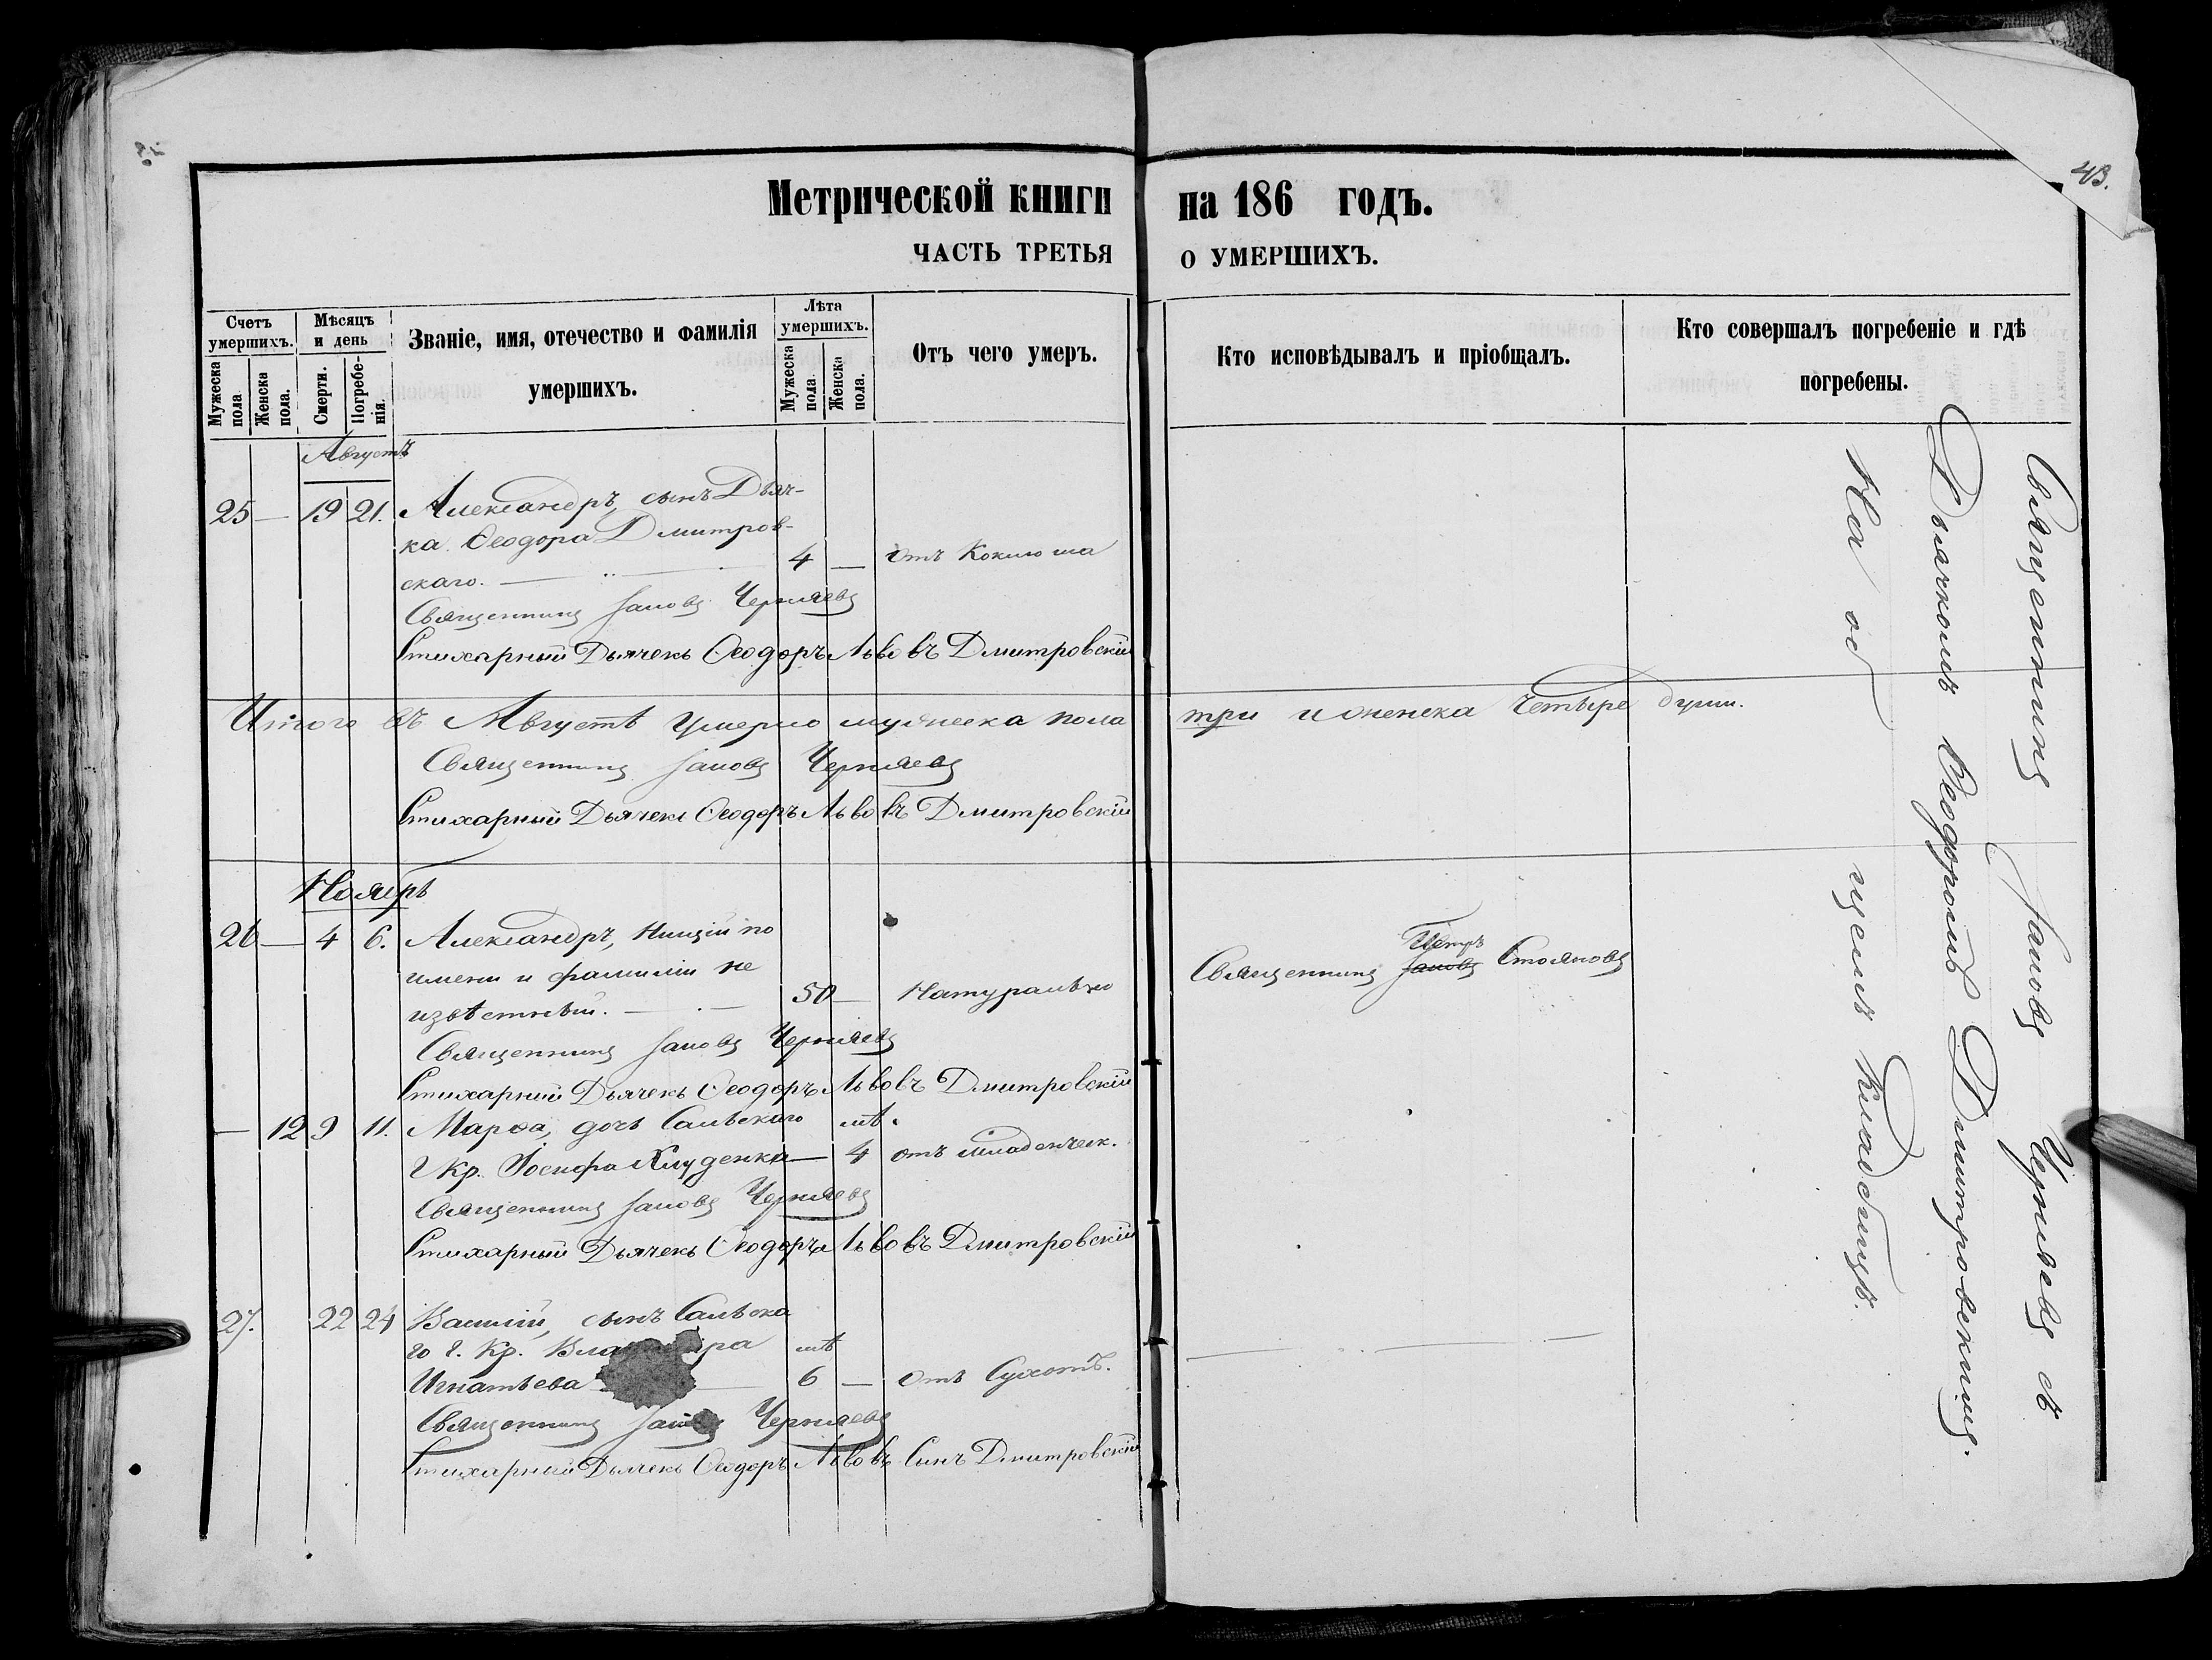 43.
Метрической книги на 186 годъ.
ЧАСТЬ ТРЕТЬЯ О УМЕРШИХЪ.
Счетъ умершихъ.
Мужеска пола
Женска пола.
Мѣсяцъ и день
Смерти.
Погребенія.
Званіе, имя, отечество и фамилія
умершихъ.
Лѣта умершихъ.
Мужеска пола.
Женска пола.
Отъ чего умеръ.
Кто исповѣдывалъ и пріобщалъ.
Кто совершалъ погребеніе и гдѣ
погребены.
Августъ
25 — 19 21. Александръ, сынъ Дьяч-
ка Ѳеодора Дмитров-
скаго. — 4 — отъ Коклюша
Священникъ Іаковъ Черняевъ
Стихарный Дьячекъ Ѳеодоръ Львовъ Дмитровскій
Итого въ Августѣ умерло мужеска пола три и женска четыре души.
Священникъ Іаковъ Черняевъ
Стихарный Дьячекъ Ѳеодоръ Львовъ Дмитровскій
Ноябрь
26 — 4 6. Александръ, Нищій по
имени и фамиліи не
извѣстный. — 50 — Натурально
Священникъ Петръ Іаковъ Стояновъ
Священникъ Іаковъ Черняевъ
Стихарный Дьячекъ Ѳеодоръ Львовъ Дмитровскій
— 12 9 11. Марѳа, дочь Сальскаго лѣ.
г Кр. Іосифа — 4 отъ младенческ.
Священникъ Іаковъ Черняевъ
Стихарный Дьячекъ Ѳеодоръ Львовъ Дмитровскій
27. 22 24 Василій, сынъ Сальска
го г. Кр. лѣ
Игнатьева — 6 — отъ Сухотъ.
Священникъ Черняевъ
Стихарный Дьячекъ Ѳеодоръ Львовъ Сынъ Дмитровскій
Священникъ Іаковъ Черняевъ съ
Дьячкомъ Ѳеодоромъ Дмитровскимъ.
На об щемъ Кладбищѣ.